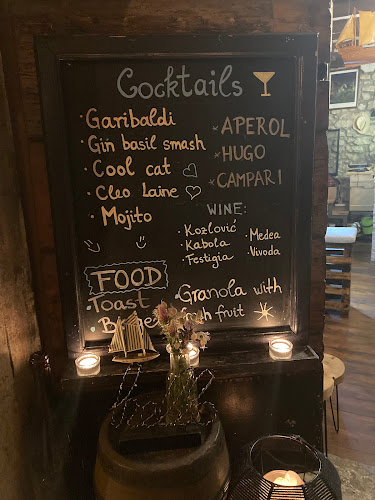 Cocktails
• Garibaldi
• Gin basil smash
• Cool cat
• Cleo Laine
• Mojito
* APEROL
* HUGO
* CAMPARI
WINE:
• Kozlović
• Kabola
• Festigia
• Medea
• Vivoda
FOOD
• Toast
• Granola with
fresh fruit